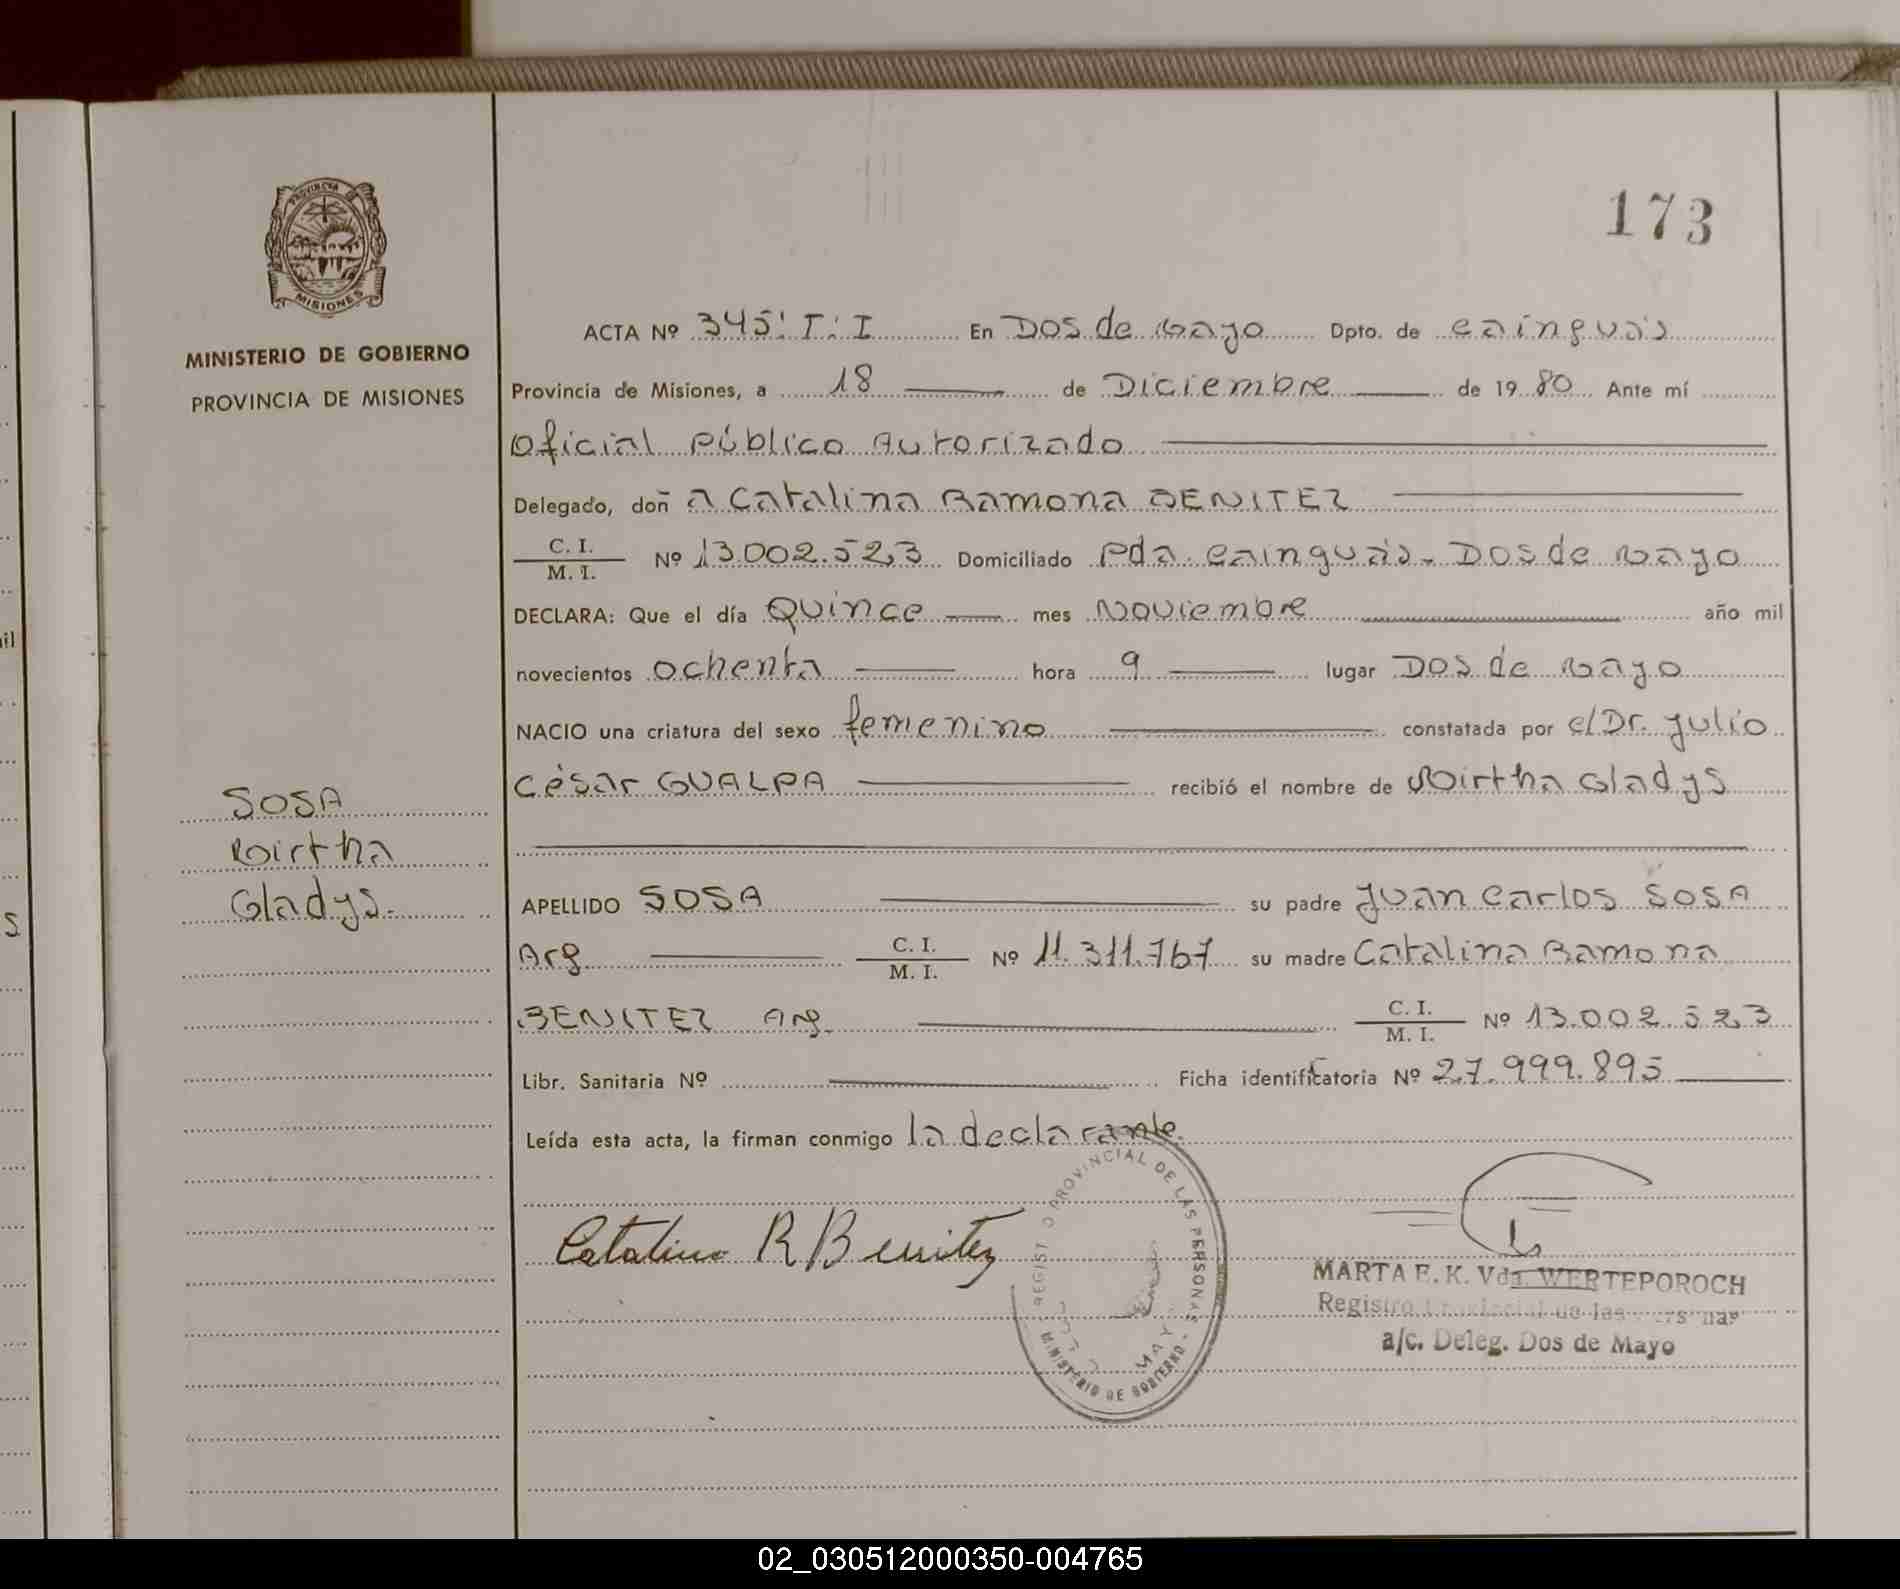 173
PROVINCIA DE
MISIONES
MINISTERIO DE GOBIERNO
PROVINCIA DE MISIONES
SOSA
Mirtha
Gladys.
ACTA Nº 345: T: I En Dos de Mayo Dpto. de Cainguás
Provincia de Misiones, a 18 de Diciembre de 1980 Ante mí
Oficial Público Autorizado
Delegado, doña Catalina Ramona BENITEZ
C. I.
M. I. Nº 13.002.523 Domiciliado Pda. Cainguás - Dos de Mayo
DECLARA: Que el día Quince mes Noviembre año mil
novecientos ochenta hora 9 lugar Dos de Mayo
NACIO una criatura del sexo femenino constatada por el Dr. Julio
César GUALPA recibió el nombre de Mirtha Gladys
APELLIDO SOSA su padre Juan Carlos SOSA
Arg. C. I.
M. I. Nº 11.311.767 su madre Catalina Ramona
BENITEZ Arg. C. I.
M. I. Nº 13.002.523
Libr. Sanitaria Nº Ficha identificatoria Nº 27.999.895
Leída esta acta, la firman conmigo la declarante.
Catalina R Benitez
PROVINCIAL DE LAS PERSONAS
MINISTERIO DE GOBIERNO
MARTA E. K. Vda. WERTEPOROCH
Registro Provincial de las Personas
a/c. Deleg. Dos de Mayo
02_030512000350-004765